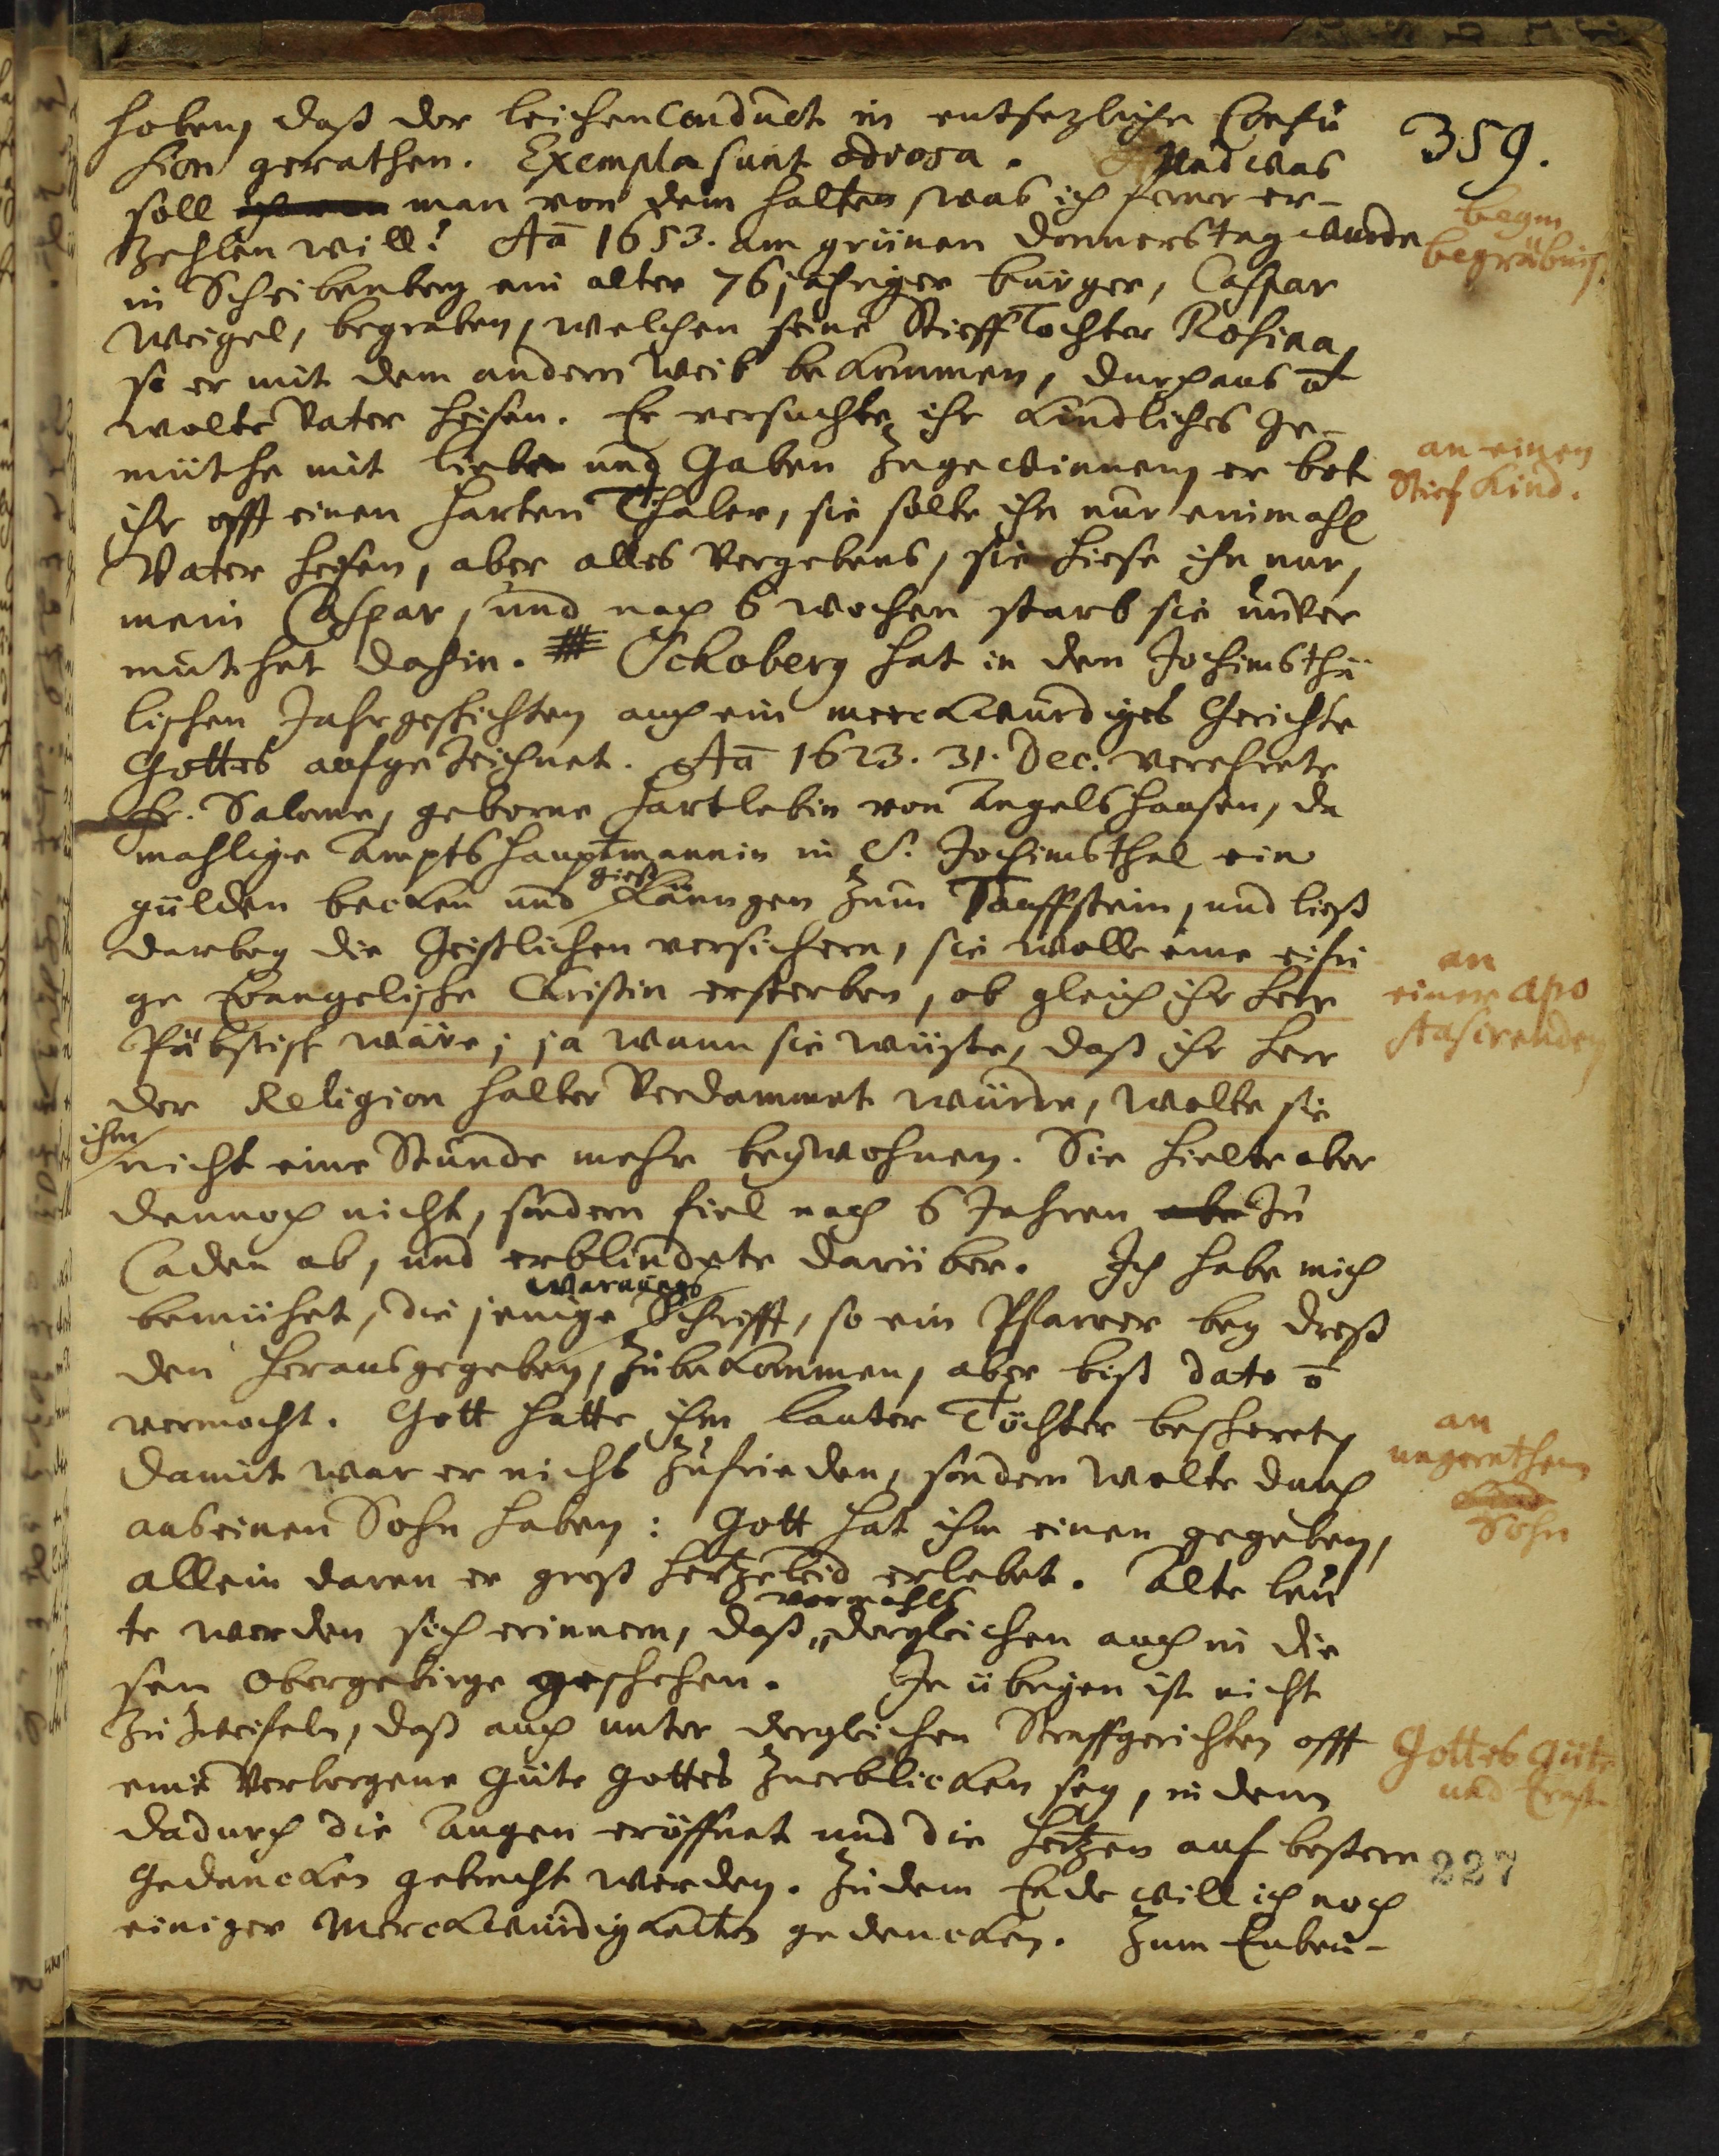 359.
hoben, daß der leichenConduct in entsezliche Confu
sion gerathen. Exempla sunt odiosa. Und was
soll man von dem halten, was ich ferner er-
zehlen will? Aō 1653. am grünen Donnerstag wurde
beym
begräbnis.
in Scheibenberg ein alter 76jähriger bürger, Caspar
Weigel, begraben, welchen seine Stieff Tochter Rosina,
so er mit dem andern Weib bekommen, durchaus ō
wolte Vater heisen. Er versuchte ihr kindliches Ge-
müthe mit liebe und Gaben zugewinnen, er bot
an einen
Stief Kind.
ihr offt einen harten Thaler, sie solte ihn nur einmahl
Vater heisen, aber alles vergebens, sie hiese ihn nur,
mein Caspar, und nach 6 wochen starb sie unver
muthet dahin. # Schoberg hat in den Jochimsthä
lischen Jahrgeschichten auch ein merckwürdiges Gerichte
Gottes aufgezeichnet. Aō 1623. 31. Dec. verehrete
Fr. Salome, geborne Hartlebin von Angelshausen, da
mahlige Amptshauptmannin in S. Jochimsthal ein
gülden becken und gieß Kängen zum Tauffstein, und ließ
darbey die Geistlichen versichern, sie wolle eine eifri
ge Evangelische Christin ersterben, ob gleich ihr Herr
an
einer apo
stasirenden
Päbstisch wäre; ja wann sie wüste, daß ihr Herr
der Religion halber verdammet würde, wolte sie
ihm nicht eine Stunde mehr beywohnen. Sie hielte aber
dennoch nicht, sondern fiel nach 6 Jahren zu
Caden ab, und erblindete darüber. Ich habe mich
bemühet, die jenige Warnungs Schrifft, so ein Pfarrer bey Dreß
den herausgegeben, zubekommen, aber biß dato ō
vermocht. Gott hatte ihm lauter Töchter bescheret,
an
ungerathenen
Sohn
damit war er nicht zufrieden, sondern wolte durch
aus einen Sohn haben: Gott hat ihm einen gegeben,
allein daran er groß Hertzeleid erlebet. Alte leu
te werden sich erinnern, daß vormahls dergleichen auch in die
sem Obergebirge geschehen. Im übrigen ist nicht
zu zweifeln, daß auch unter dergleichen Straffgerichten offt
Gottes Güte
und Ernst
eine verborgene Güte Gottes zuerblicken sey, in dem
dadurch die Augen eröffnet und die Hertzen auf bessere
Gedancken gebracht werden. Zu dem Ende will ich noch
227
einiger Merckwürdigkeiten gedencken. Zum Eubeu-